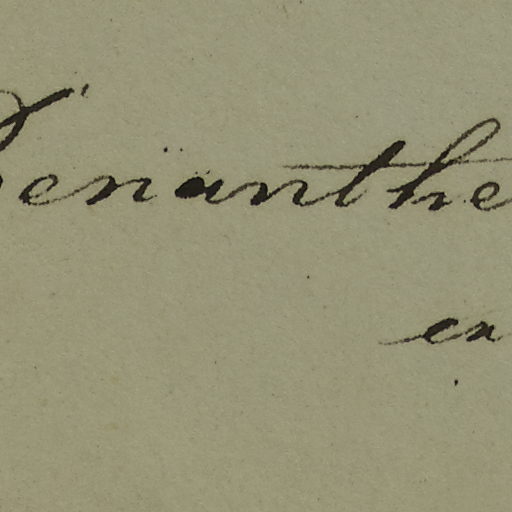 enanthe
en